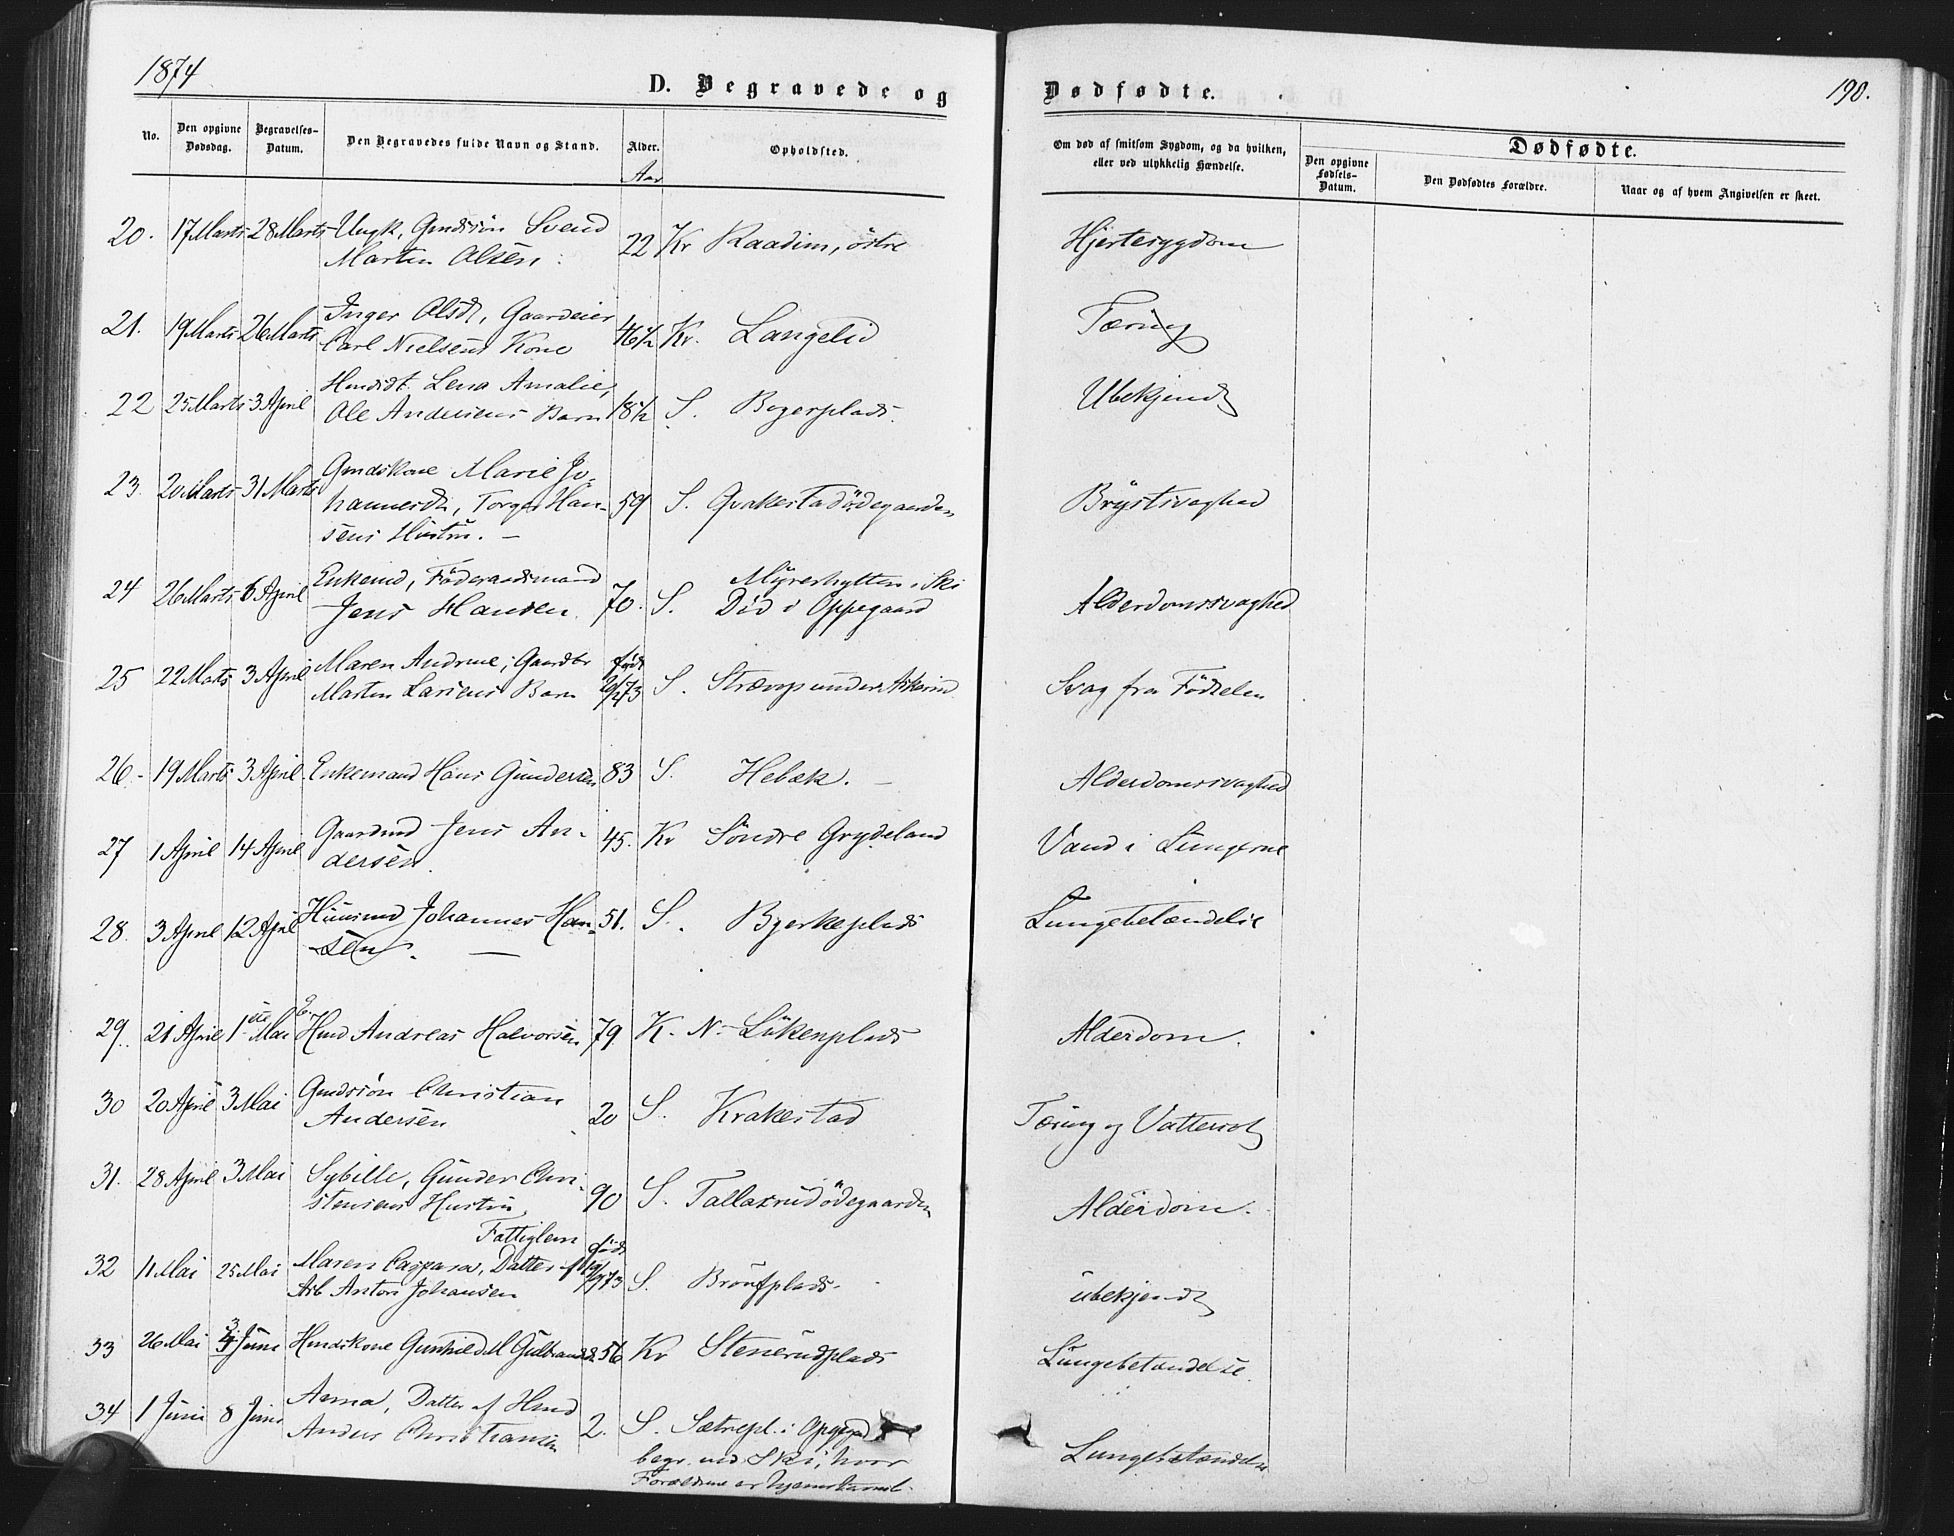 1874
D. Begravede og
Dødfødte.
190.
No.
Den opgivne Dødsdag.
Begravelses-Datum.
Den Begravedes fulde Navn og Stand.
Alder.
Aar
Opholdsted.
Om død af smitsom Sygdom, og da hvilken, eller ved ulykkelig Hændelse.
Dødfødte.
Den opgivne Fødsels-Datum.
Den Dødfødtes Forældre.
Naar og af hvem Angivelsen er skeet.
20. 17 Marts 28 Marts Ungk, Gmdssön Svend
Martin Olsen. 22 Kr Raadim, östre Hjertesygdom
21. 19 Marts 26 Marts Inger Olsdt, Gaardeier
Carl Nielsens Kone 46½ Kr. Langelid Tæring
22 25 Marts 3 April Lena Amalie,
Ole Andersens Barn 18½ S. Bogerplads. Ubekjendt
23. 20 Marts 31 Marts Gmdskone Marie Jo-
hannesdt, Torger Han- 59 S. Qvakestadödegaarden Brystsvaghed
sens Hustru. –
24 26 Marts 6 April Enkemd, Föderaadsmand Myrerhytten i Ski
Jens Hansen. 70. S. Död i Oppegaard Alderdomssvaghed
25 22 Marts 3 April Maren Andrine, Gaardbr född
Martin Larsens Barn S. under Askerud Svag fra Födselen
26 - 19 Marts 3 April Enkemand Hans Gundersen 83 S. Hebæk. – Alderdomssvaghed
27 1 April 14 April Gaardmd Jens An-
dersen. 45. Kr Söndre Grydeland Vand i Lungerne
28. 3 April 12 April Huusmd Johannes Han-
sen. – 51. S. Bjerkeplads Lungebetændelse
29. 21 April 1ste Mai Hmd Andreas Halvorsen 79 K. N. Lökenplads Alderdom.
30 20 April 3 Mai Gmdssön Christian
Andersen 20 S. Krakestad Tæring og Vattersot
31. 28 April 3 Mai Sybille, Gunder Chri-
stensens Hustru, 90 S. Tallaxrudödegaarden Alderdom.
Fattiglem
32 11 Mai 25 Mai Maren Caspara, Datter af född
Arb Anton Johansen S. ubekjendt
33 26 Mai 3 Juni Hmdskone Gunhild M Gulbrandsd. 56 Kr Stenerudplads Lungebetændelse.
34 1 Juni 8 Juni Anna, Datter af Hmd
Anders Christiansen 2. S. Sætrepl. i Opgegd Lungebetændelse
begr. ved Ski, hvor
Forældrene er hjemstavnsb.